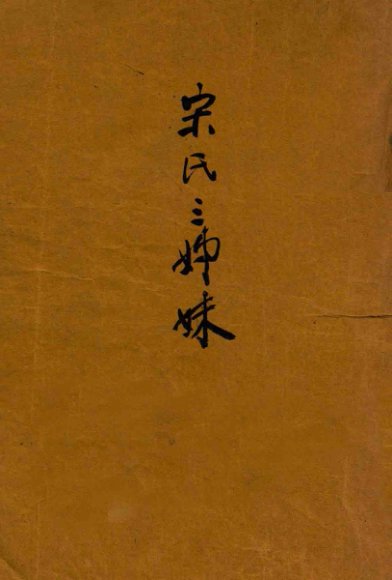 宋氏三姊妹